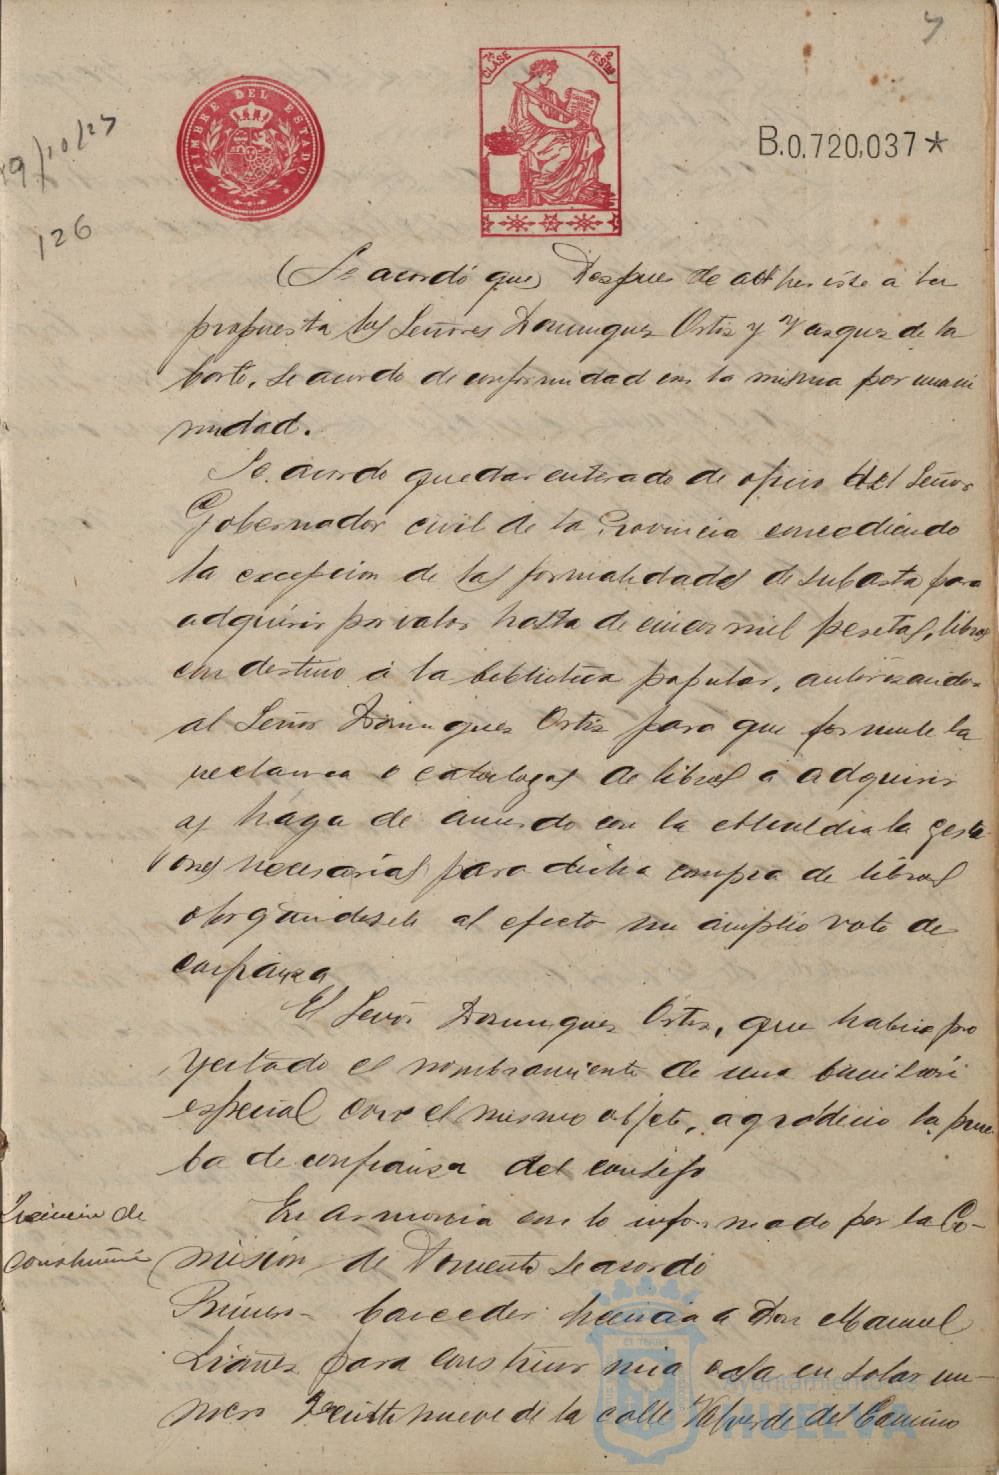 7
TIMBRE DEL ESTADO
7ª CLASE
2 PESTAS
B.0.720,037*
9/10/27
126
(Se acordó que) Despues de adherirse a la
propuesta los Señores Dominguez Ortiz y Vazquez de la
Corte, se acordo de conformidad con la misma por unani
midad.
Se acordo quedar enterado de oficio del Señor
Gobernador civil de la Provincia concediendo
la excepcion de las formalidades de subasta para
adquirir por valor hasta de cinco mil pesetas, libros
con destino á la biblioteca popular, autorizando
al Señor Dominguez Ortiz para que formule la
o catalogos de libros a adquirir
y haga de acuerdo con la Alcaldia la gesti
ones necesarias para dicha compra de libros
otorgandosele al efecto un amplio voto de
confianza
El Señor Dominguez Ortiz, que habia pro
yectado el nombramiento de una
especial con el mismo objeto, agradecio la prue
ba de confianza del consejo
Licencia de
construccion
En armonia con lo informado por la Co-
mision de Fomento se acordó
Primero- Conceder licencia a Don Manuel
Liañez para construir una casa en solar nu-
mero nueve de la calle Valverde del Camino
Ayuntamiento de
HUELVA